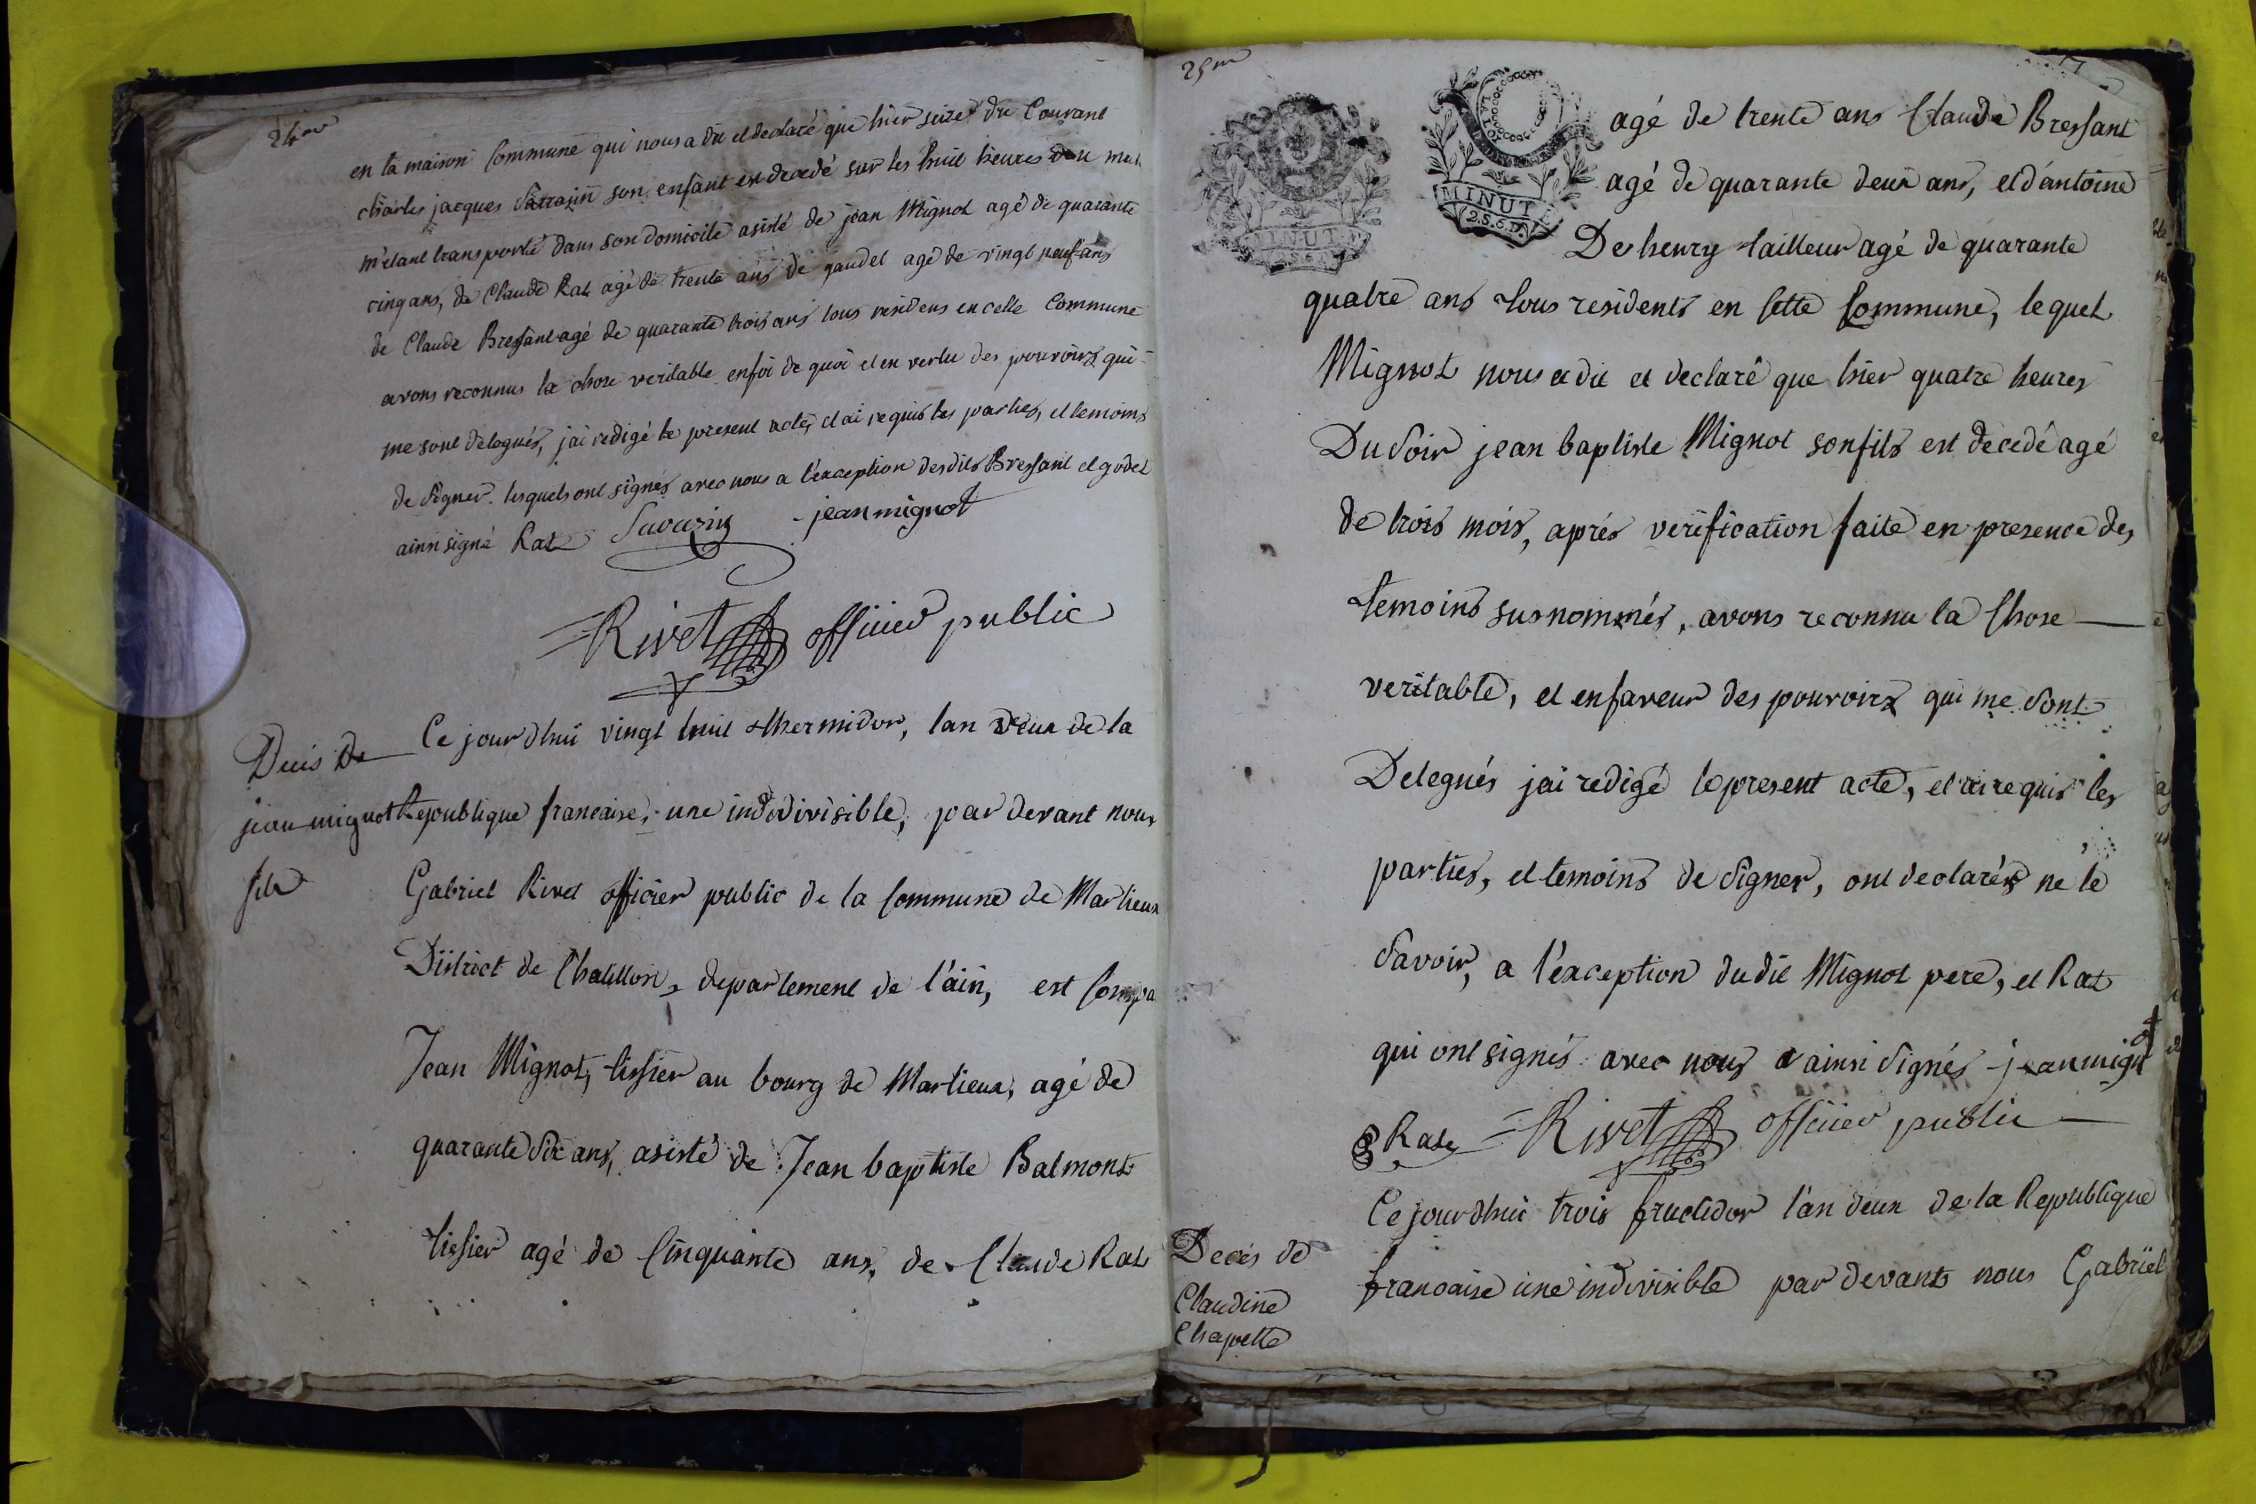 24me
en la maison Commune qui nous a dit et declaré que hier seize du Courant
charles jacques Sarrazin son enfant est decedé sur les huit heures du mat
m'étant transporté dans son domicile asisté de jean Mignot agé de quarante
cinq ans, de Claude Rat agé de trente ans de gaudet agé de vingt neuf ans
de Claude Bressant agé de quarante trois ans tous residens en cette Commune
avons reconnus la chose veritable enfoi de quoi et en vertu des pouvoirs qui
me sont delegués, jai redigé le present acte, et ai requis les parties, et temoins
de Signer. lesquels ont signés avec nous a l'exception desdits Bressant et godet
ainsi signé Rat Savazin jean mignot
Rivet officier public
Decis de
jean mignot
fils
Ce jourdhui vingt huit thermidor, lan deux de la
Republique francaise, une indivisible, par devant nous
Gabriel Rivet officier public de la Commune de Marlieux
District de Chatillon, departement de l'ain, est Compa
Jean Mignot, tissier au bourg de Marlieux, agé de
quarante Six ans, asisté de Jean baptiste Balmont
tissier agé de Cinquante ans, de Claude Rat
25me
MINUT
2.S.6.D.
MINUT
agé de trente ans Claude Bressant
agé de quarante deux ans, et d'antoine
De henry tailleur agé de quarante
quatre ans tous residents en Cette Commune, lequel
Mignot nous a dit et declaré que hier quatre heures
Du Soir jean baptiste Mignot son fils est decedé agé
de trois mois, aprés verification faite en presence des
temoins susnommés, avons reconnu la Chose
veritable, et en faveur des pouvoirs qui me Sont
Delegués jai redigé le present acte, et ai requis les
parties, et temoins de Signer, ont declarés ne le
Savoir, a l'exception dudit Mignot pere, et Rat
qui ont signés avec nous ainsi Signés jean mignot
Rat Rivet officier public
Decés de
Claudine
Chapelle
Ce jourdhui trois fructidor l'an deux de la Republique
francaise une indivisible par devant nous Gabriel